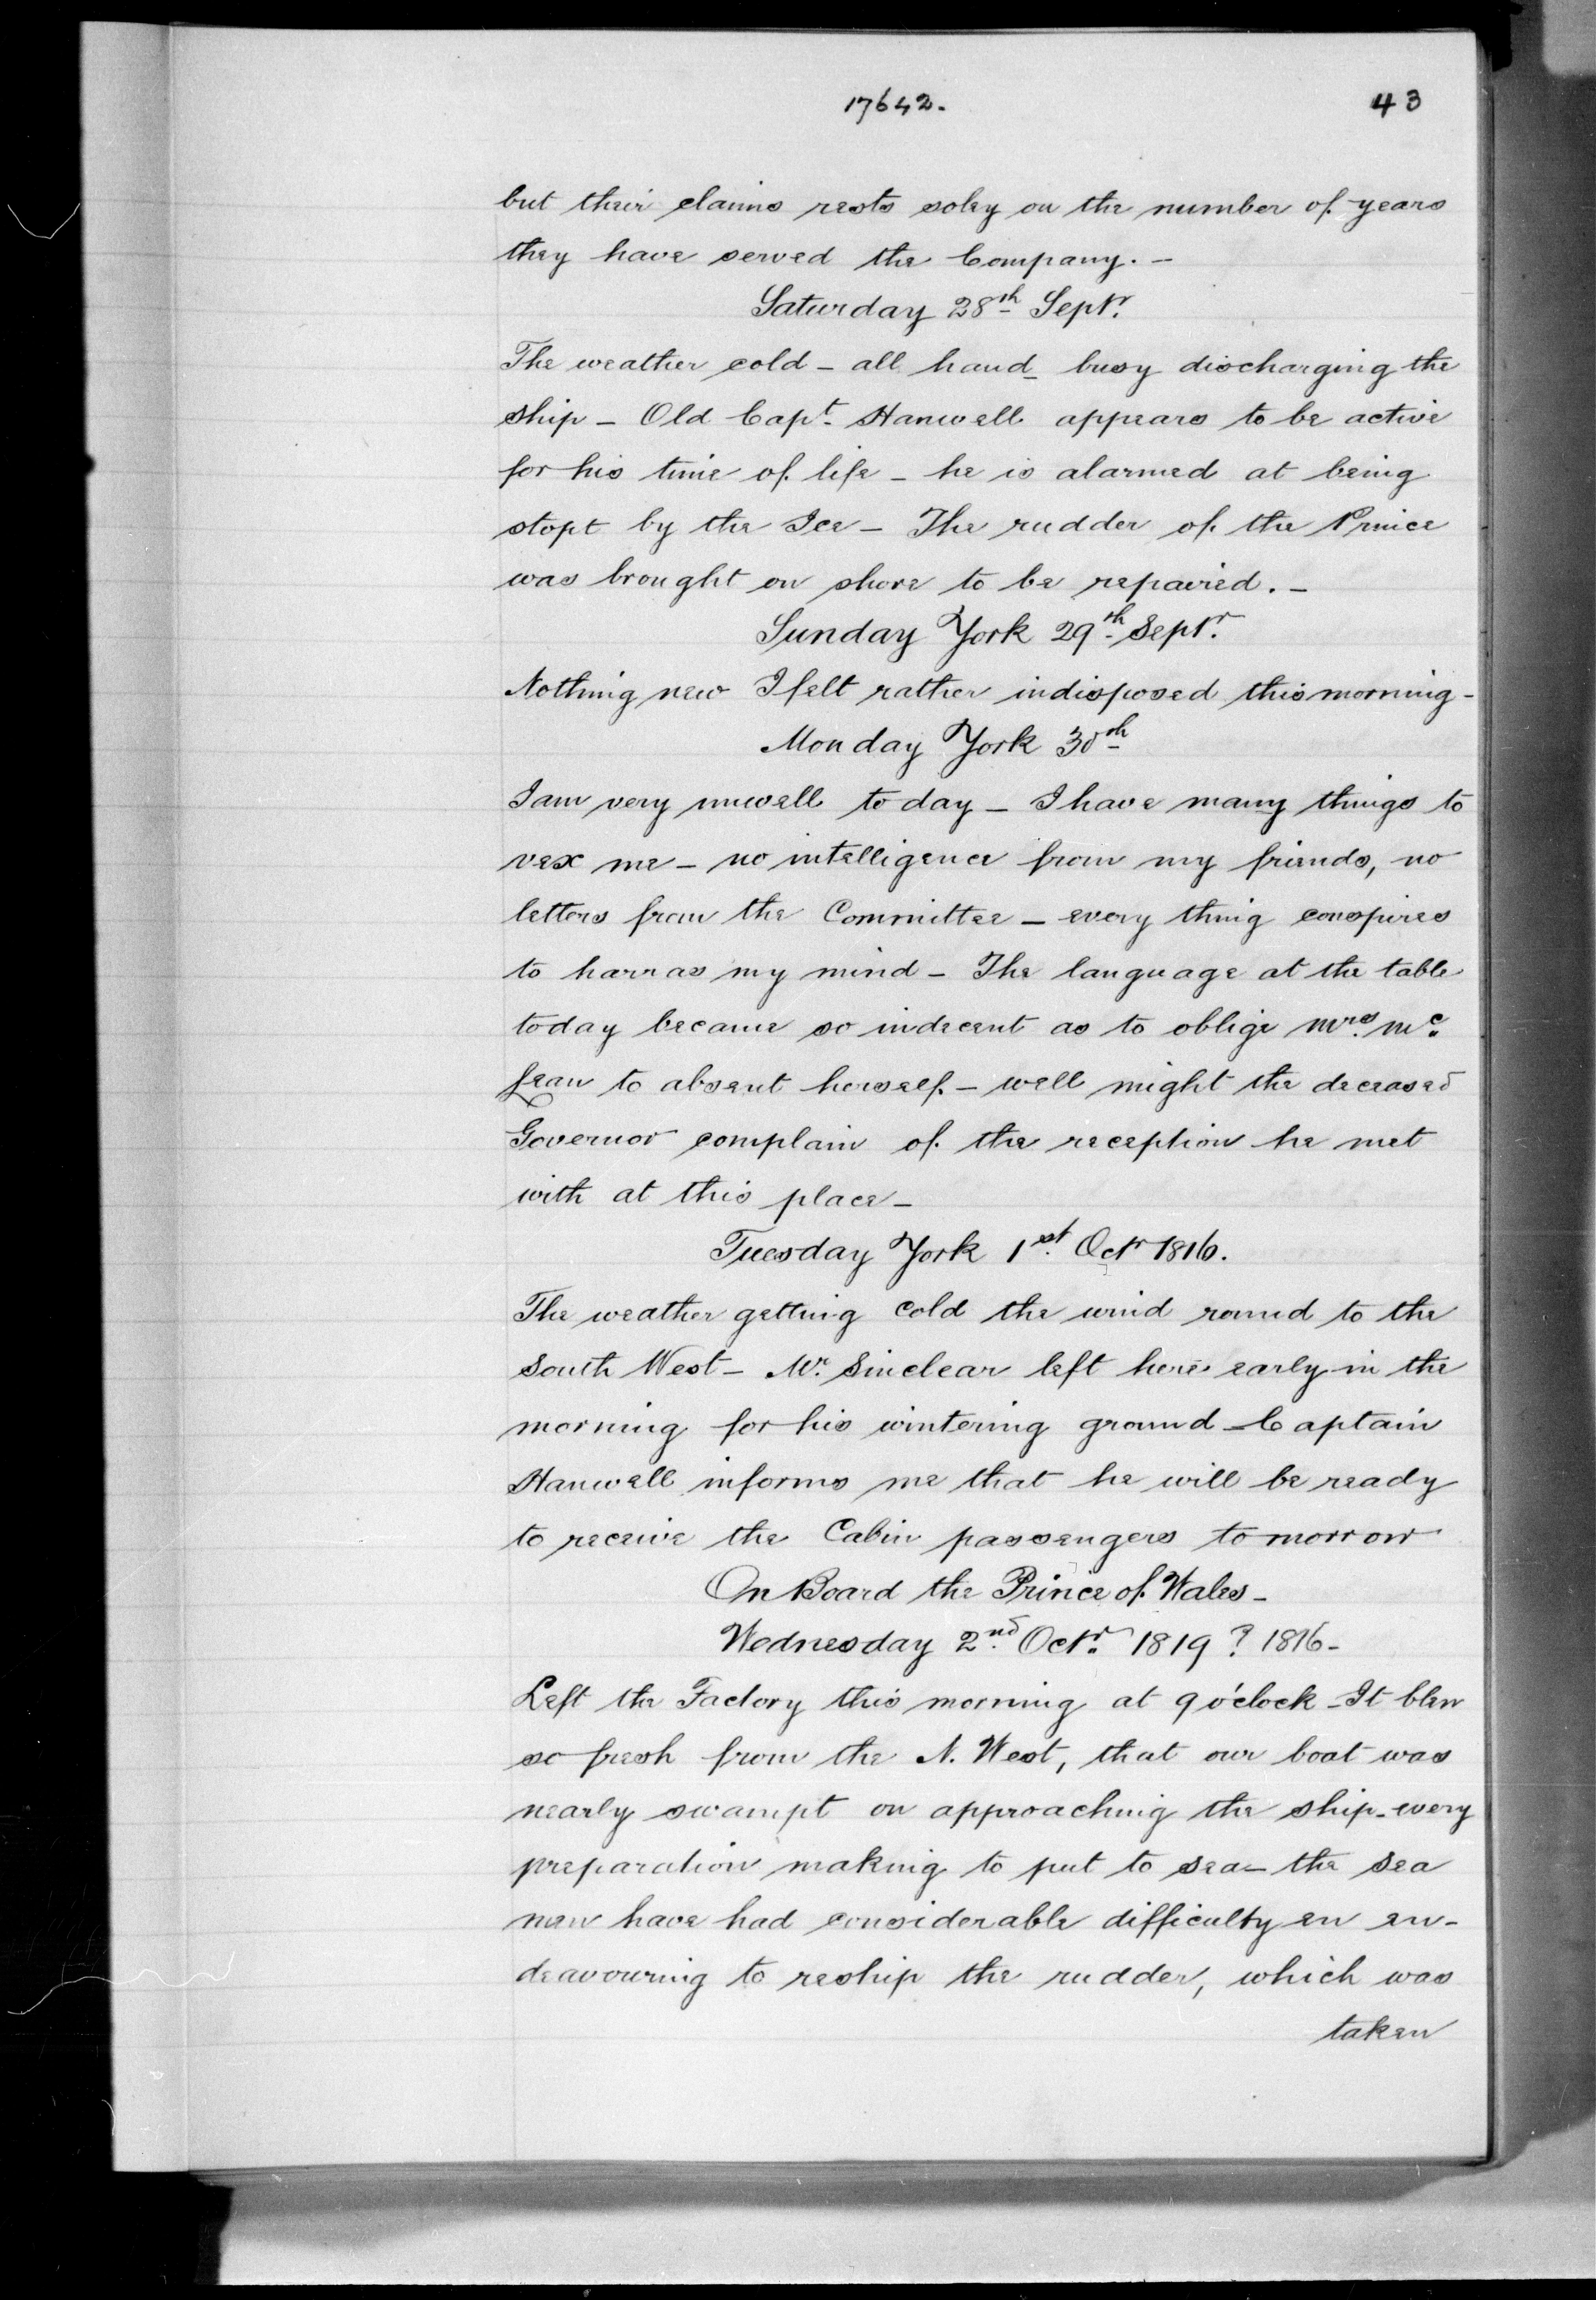 17642. 43
but their claims rests soley on the number of years
they have served the Company. -
Saturday 28th Septr.
The weather cold - all hand - busy discharging the
ship - Old Capt. Hanwell appears to be active
for his time of life - he is alarmed at being
stopt by the Ice - The rudder of the Prince
was brought on shore to be repaired. -
Sunday York 29th Septr.
Nothing new I felt rather indisposed this morning -
Monday York 30th
I am very unwell to day - I have many things to
vex me - no intelligence from my friends, no
letters from the Committee - every thing conspires
to harras my mind - The language at the table
today became so indecent as to oblige Mrs. Mc.
Lean to absent herself - well might the deceased
Governor complain of the reception he met
with at this place -
Tuesday York 1st. Octr 1816.
The weather getting cold the wind round to the
South West - Mr. Sinclear left here early in the
morning for his wintering ground - Captain
Hanwell informs me that he will be ready
to receive the Cabin passengers tomorrow
On Board the Prince of Wales -
Wednesday 2nd. Octr. 1819? 1816 -
Left the Factory this morning at 9 o'clock - It blew
so fresh from the N. West, that our boat was
nearly swampt on approaching the ship - every
preparation making to put to sea - the sea
men have had considerable difficulty en en-
deavouring to reship the rudder, which was
taken